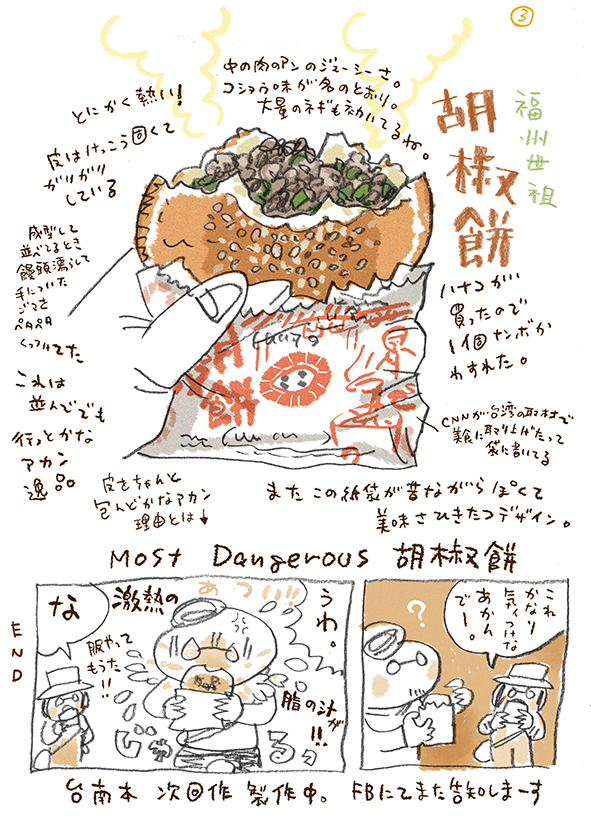 3
福州世祖
胡椒餅
中の肉のアンのジューシーさ。
コショウ味が名のとおり。
大量のネギも効いてるね。
とにかく熱い!
皮はけっこう固くて
ガリガリ
している
成型して
並べてるとき
饅頭濡らして
手についた
ゴマを
ペタペタ
くっつけてた
これは
並んででも
行っとかな
アカン
逸品
ハナコが
買ったので
1個ナンボか
わすれた。
餅
CNNが台湾の取材で
美食に取り上げたって
袋に書いてる
またこの紙袋が昔ながらっぽくて
美味さひきたつデザイン。
皮をちゃんと
包んどかなアカン
理由とは↓
Most Dangerous 胡椒餅
これ
かなり
気ぃつけな
あかん
でー。
?
うわ。
あつい!!
激熱の
脂の汁が
!!
な
服やって
もうた!!
END
台南本 次回作 製作中。 FBにてまた告知しまーす